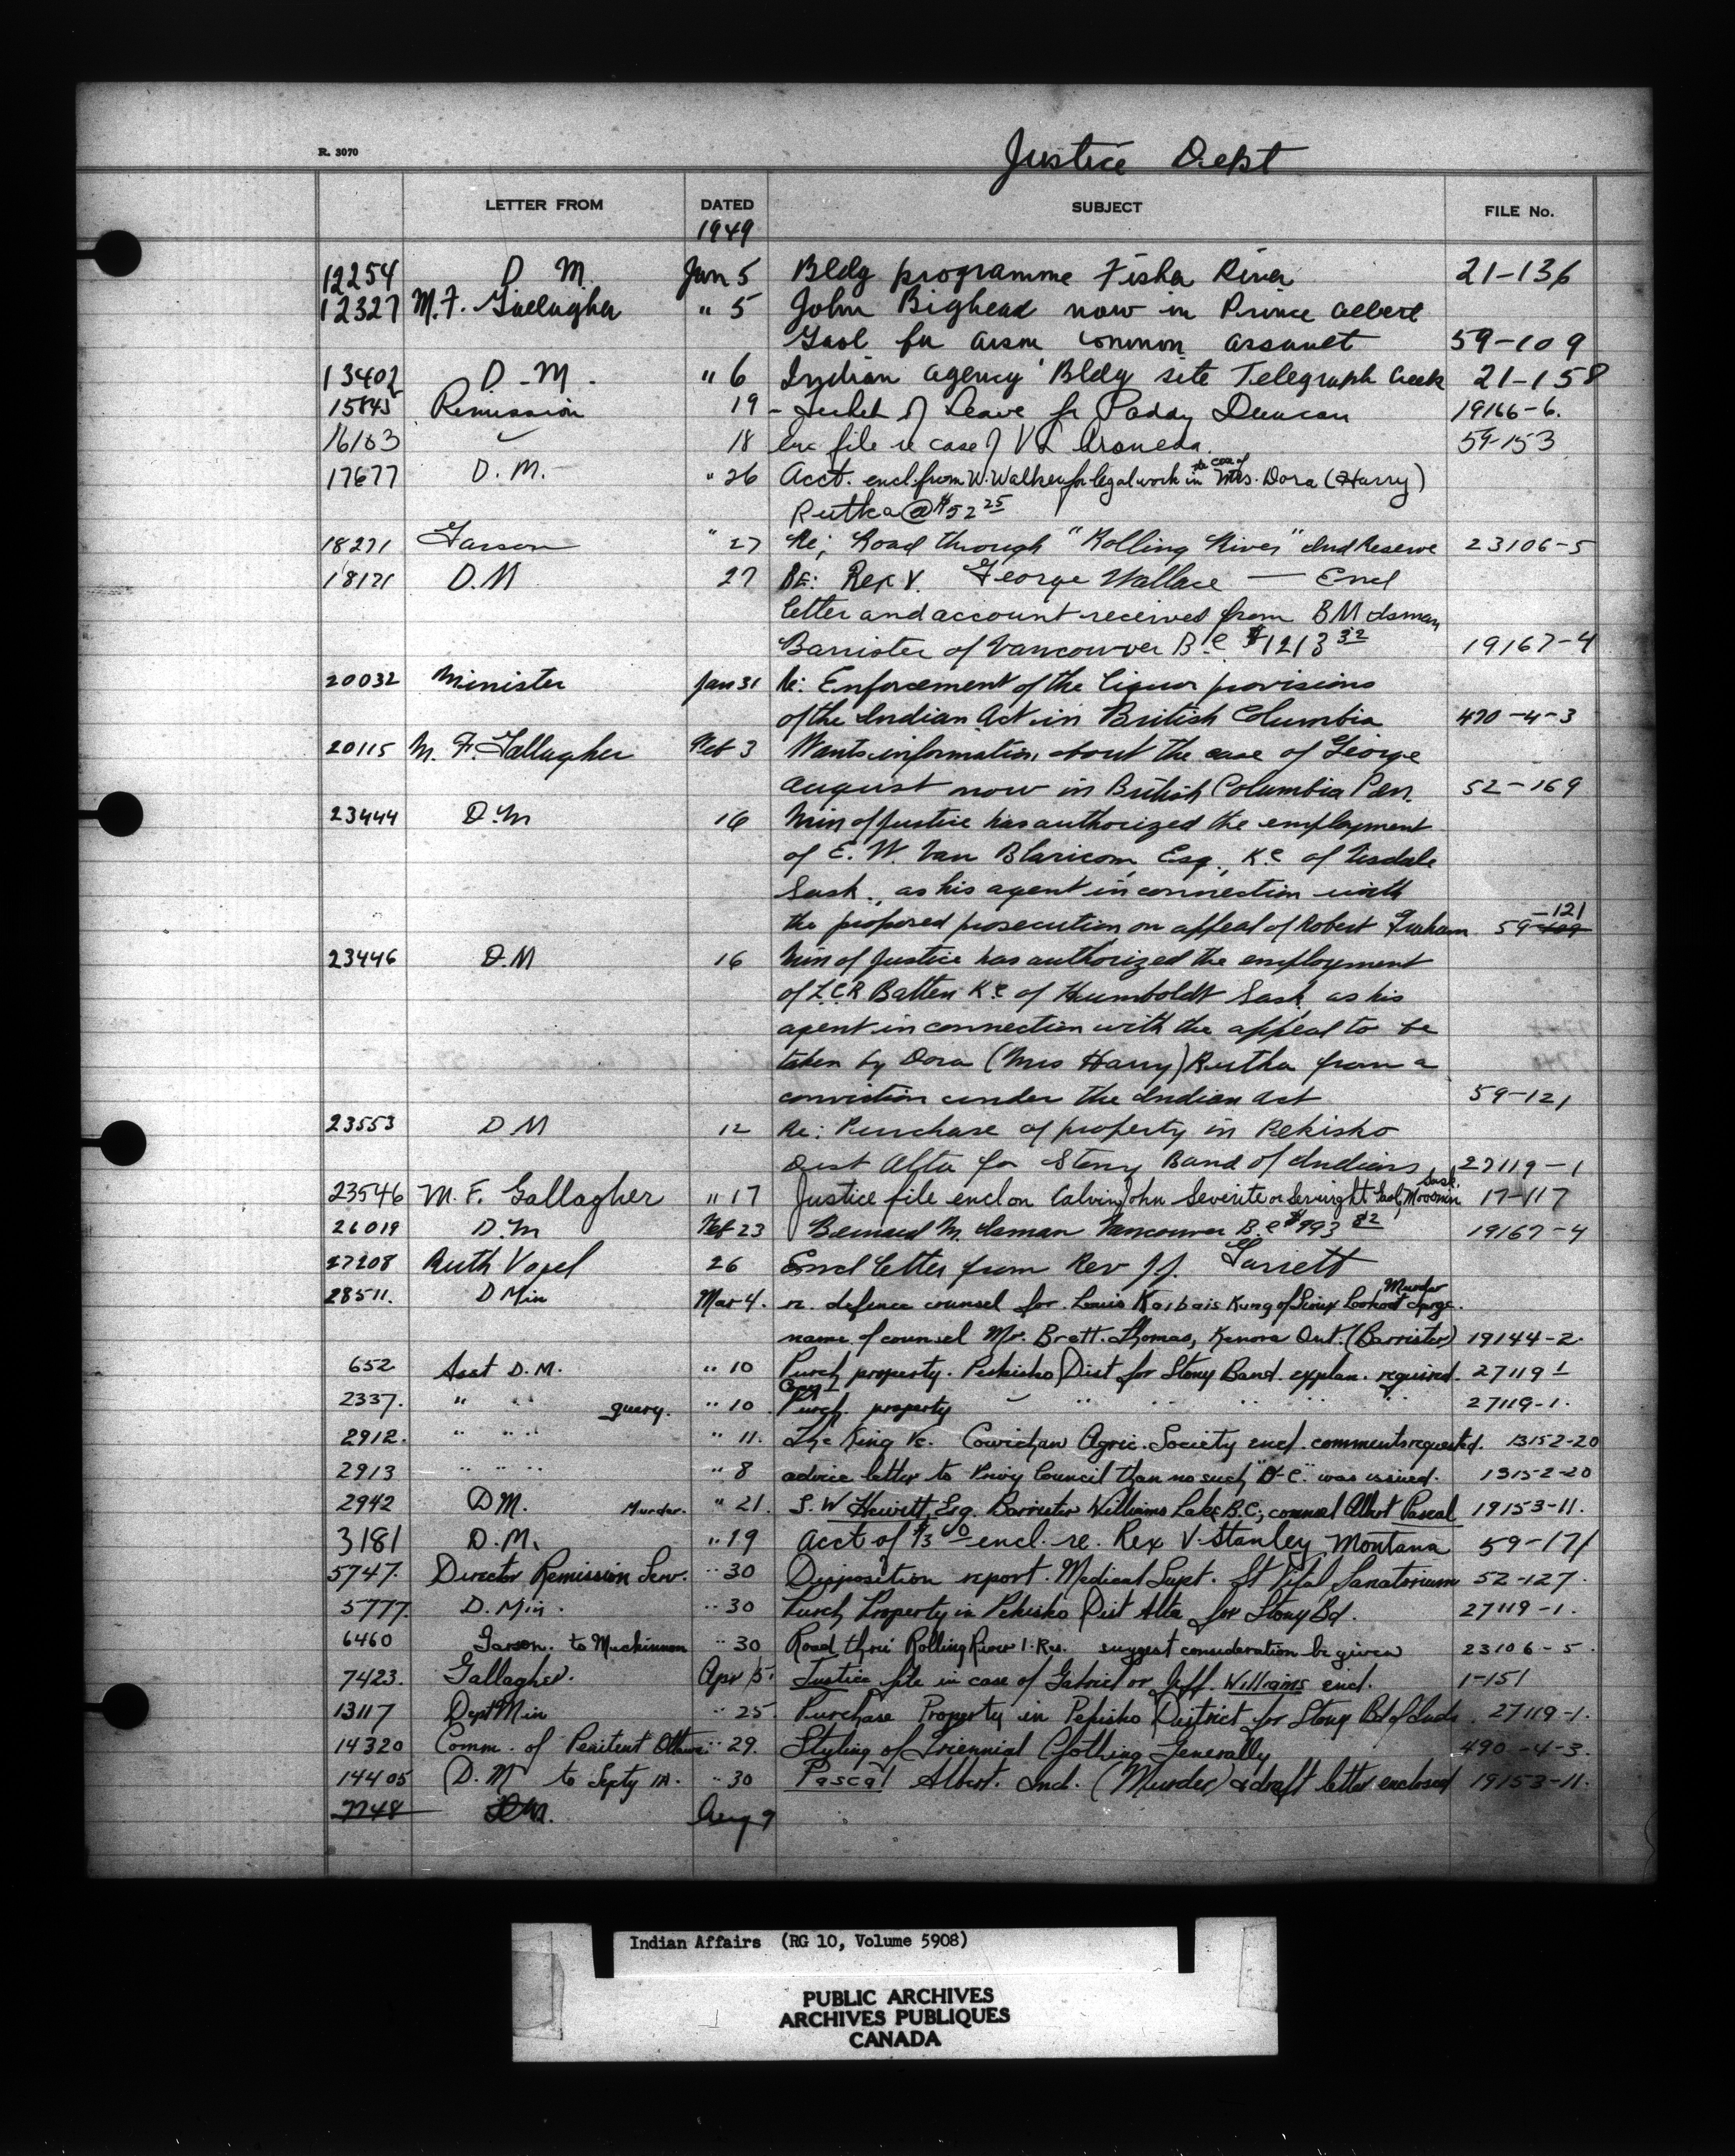 Justice Dept
R. 3070
LETTER FROM DATED SUBJECT FILE No.
1949
12254 D M. Jan 5 Bldg programme Fisher River 21-136
12327 M. F. Gallagher " 5 John Bighead now in Prince Albert
Gaol for common assault 59-109
13402 D-M. " 6 Indian agency Bldg site Telegraph Creek 21-158
15845 Remission 19 - Ticket of Leave for Paddy Duncan 19166-6.
16163 18 file re case of V L 59-153
17677 D. M. " 26 Acct. encl. from W. Walker for legal work in the case of Mrs. Dora (Harry)
Rutka @ $52 25
18271 Garson " 27 Re; Road through "Rolling River" Ind Reserve 23106-5
18121 D. M 27 RE: Rex V. George Wallace — Encl
letter and account received from B M Isman
Barrister of Vancouver B.C $1213 32 19167-4
20032 Minister Jan 31 Re: Enforcement of the liquor provisions
of the Indian Act in British Columbia 470-4-3
20115 M. F. Gallagher Feb 3 Wants information about the case of George
August now in British Columbia Pen. 52-169
23444 D.M 16 Min of Justice has authorized the employment
of E. W. Van Blaricom, Esq., K.C of Tisdale
Sask., as his agent in connection with
the proposed prosecution on appeal of Robert Graham 59-121
23446 D.M 16 Min of Justice has authorized the employment
of L.C.R Batten K.C of Humboldt Sask. as his
agent in connection with the appeal to be
taken by Dora (Mrs Harry) Rutka from a
conviction under the Indian Act 59-121
23553 D M 12 Re: Purchase of property in Pekisko
Dist Alta for Stony Band of Indians 27119-1
23546 M. F. Gallagher " 17 Justice file encl on Calvin John Severite or Gaol, Moosomin Sask. 17-117
26019 D.M Feb 23 Bernard M. Isman Vancouver B.C $993 82 19167-4
27208 Ruth Vogel 26 Encl letter from Rev J J. Garrett
28511. D Min Mar 4. re. defence counsel for Louis Kaibais Kung of Sioux Lookout Murder charge.
name of counsel Mr. Brett. Thomas, Kenora Ont. (Barrister) 19144-2.
652 Asst D. M. " 10 Purch property. Pekisko Dist for Stony Band. explan. required. 27119-1
2337. " " " query. " 10 Purch. property " " " " " 27119-1.
2912. " " " " 11. The King Vs. Cowichan Agric. Society encl. comments requested. 13152-20
2913 " " " " 8 advice letter to Privy Council than no such "O-C." was issued. 13152-20
2942 DM. Murder. " 21. S. W Hewitt, Esq. Barrister Williams Lake B.C., counsel Albert Pascal 19153-11.
3181 D. M. " 19 Acct of encl. re. Rex V Stanley Montana 59-171
5747. Director Remission Serv. " 30 Disposition report. Medical Supt. St Vital Sanatorium 52-127.
5777. D. Min. " 30 Purch Property in Pekisko Dist Alta for Stony Bd. 27119-1.
6460 Garson. to Mackinnon " 30 Road thru Rolling River I. Res. suggest consideration be given 23106-5.
7423. Gallagher. Apr 5. Justice file in case of Gabriel or Jeff. Williams encl. 1-151
13117 Dept Min " 25. Purchase Property in Pekisko District for Stony Bd of Inds. 27119-1.
14320 Comm. of Penitent Ottawa " 29. Styling of Triennial Clothing Generally 490-4-3.
14405 D. M to Septy IA. " 30 Pascal Albert. Ind. (Murder) & draft letter enclosed 19153-11.
7748 D M. Aug 9
Indian Affairs (RG 10, Volume 5908)
PUBLIC ARCHIVES
ARCHIVES PUBLIQUES
CANADA